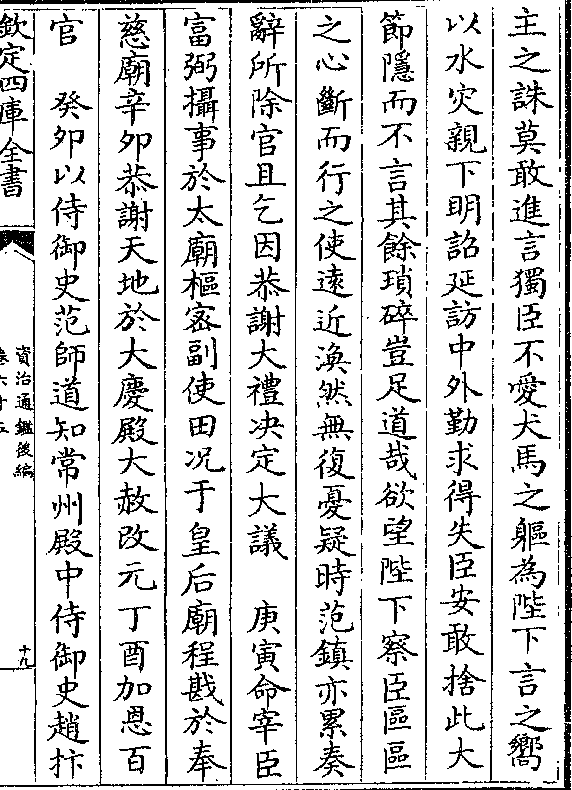 主之誅莫敢進言獨臣不愛犬馬之軀為陛下言之嚮
以水灾親下明詔延訪中外勤求得失臣安敢捨此大
節隱而不言其餘瑣碎豈足道哉欲望陛下察臣區區
之心斷而行之使遠近渙然無復憂疑時范鎮亦累奏
辭所除官且乞因恭謝大禮决定大議　庚寅命宰臣
富弼攝事於太廟樞宻副使田况于皇后廟程戡於奉
慈廟辛夘恭謝天地於大慶殿大赦改元丁酉加恩百
官　癸夘以侍御史范師道知常州殿中侍御史趙抃
欽定四庫全書
資治通鑑後編
卷六十五
十九